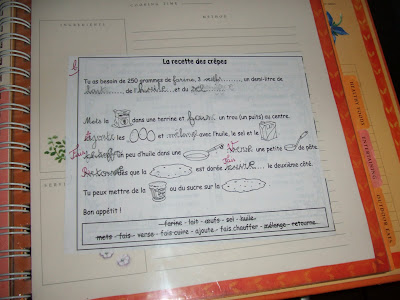 COOKING TIME
INGREDIENTS
METHOD
La recette des crêpes
Tu as besoin de 250 grammes de farine, 3 œufs, un demi-litre de
de l'huile et du sel
Mets la dans une terrine et fais un trou (un puits) au centre.
Ajoute les et mélange avec l'huile, le sel et le
Fais chauffer un peu d'huile dans une et verse une petite de pâte.
que la est dorée fais cuire le deuxième côté.
Tu peux mettre de la ou du sucre sur la
Bon appétit !
farine - lait - œufs - sel - huile
mets - fais - verse - fais cuire - ajoute - fais chauffer - mélange - retourne
SERVES
HEALTHY FOODS
ENTERTAINING